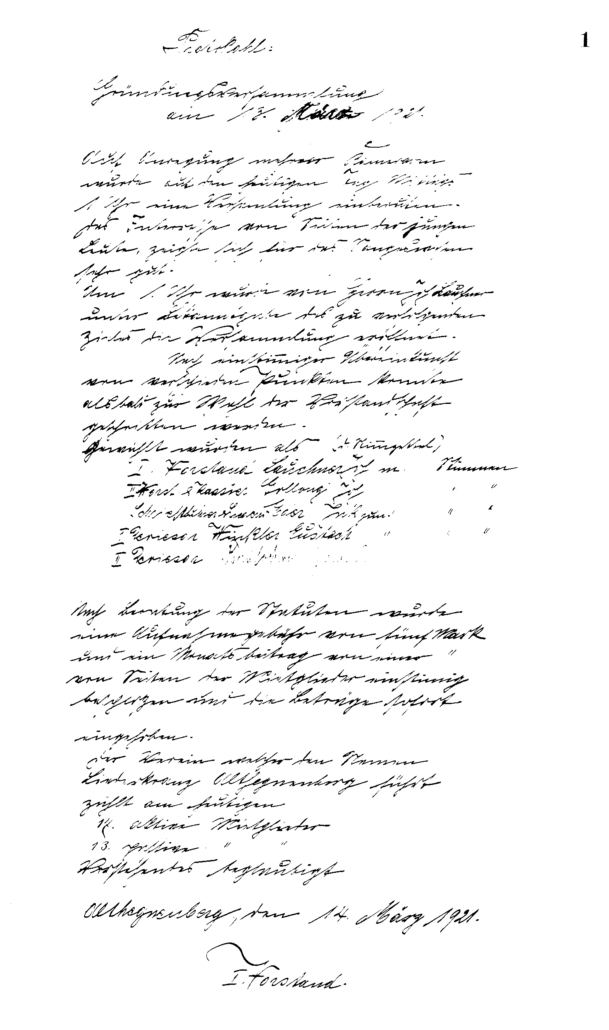 1
Protokoll:
Gründungsversammlung
am 13. März 1921.
Auf Anregung mehrerer
wurde auf den heutigen Tag Mittags
1 Uhr eine Versammlung einberufen.
Das Interesse von Seiten der jungen
Leute, zeigte sich für das
sehr gut.
Um 1. Uhr wurde von Herrn Lauchner
unter Bekanntgabe des zu verfolgenden
Zieles die Versammlung eröffnet.
Nach einstimmiger Übereinkunft
von verschieden Punkten konnte
alsbald zur Wahl der Vorstandschaft
geschritten werden.
Gewählt wurden als
I. Vorstand Lauchner m. Stimmen
II Vorst. & Kassier " "
Schriftführer " "
I Beisser Winkler Eustach " "
II Beisser
Nach Beratung der Statuten wurde
eine Aufnahmegebühr von fünf Mark
und ein Monatsbeitrag von einer "
von Seiten der Mietglieder einstimig
beschlossen und die Beträge sofort
eingehoben.
Der Verein welcher den Namen
Liederkranz Althegnenberg führt
zählt am heutigen
14. aktive Mietglieder
13. passive " "
Vorstehendes beglaubigt
Althegnenberg, den 14. März 1921.
I. Vorstand.